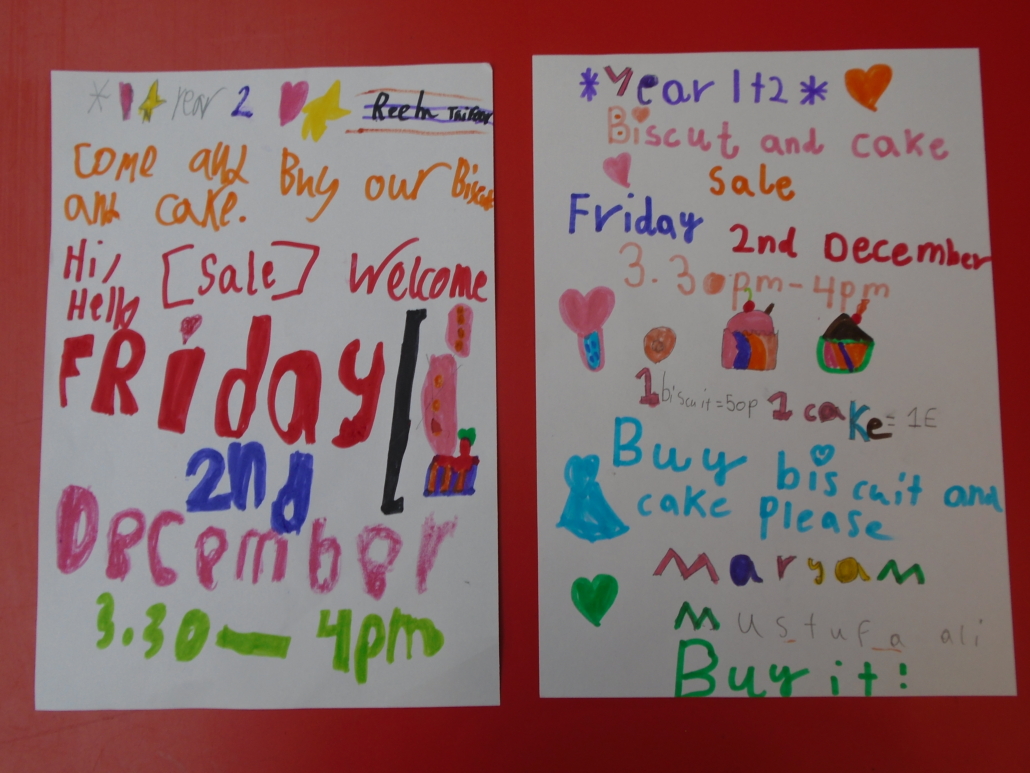 Year 2
Come and Buy our
and cake.
Hi, [Sale] Welcome
Hello
FRiday
2nd
December
3.30 — 4pm
*Year 1+2*
Biscut and cake
sale
Friday 2nd December
3.30pm - 4pm
1 biscuit = 50p 1 cake = 1£
Buy biscuit and
cake please
Maryam
Mustufa ali
Buy it!